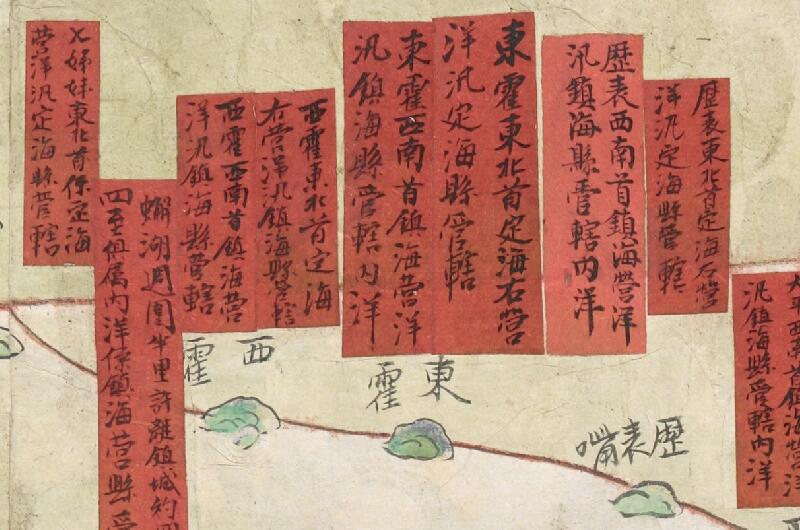 歷表東北首定海右營
洋汛定海縣管轄
歷表西南首鎮海營洋
汛鎮海縣管轄內洋
東霍東北首定海右營
洋汛定海縣管轄
東霍西南首鎮海營洋
汛鎮海縣管轄內洋
西霍東北首定海
右營洋汛鎮海縣管轄
西霍西南首鎮海營
洋汛鎮海縣管轄
七姊妹東北首係定海
營洋汛定海縣管轄
蠏湖週圍半里許離鎮城約
四至俱属內洋係鎮海營縣
太平西南首鎮海營洋
汛鎮海縣管轄內洋
歷表嘴
東霍
西霍